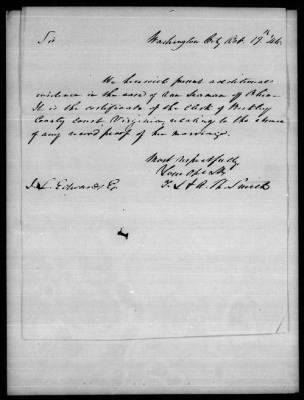 Sir Washington City Oct. 19th /46
We herewith present additional
evidence in the case of Ann Seaman of Ohio.
It is the certificate of the Clerk of Berkley
County court Virginia, relating to the absence
of any record proof of her marriage.
Most respectfully
Your Obt Svts
J. L. Edwards Esq F. S & A. H. Smith